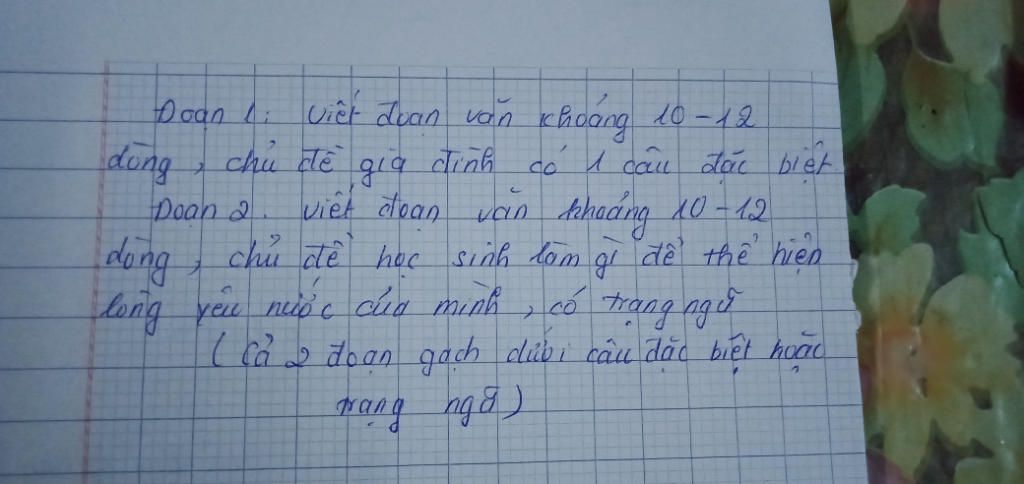 Đoạn 1: Viết đoạn văn khoảng 10-12
dòng, chủ đề gia đình có 1 câu đặc biệt.
Đoạn 2. Viết đoạn văn khoảng 10-12
dòng, chủ đề học sinh làm gì để thể hiện
lòng yêu nước của mình, có trạng ngữ
(Cả 2 đoạn gạch dưới câu đặc biệt hoặc
trạng ngữ)